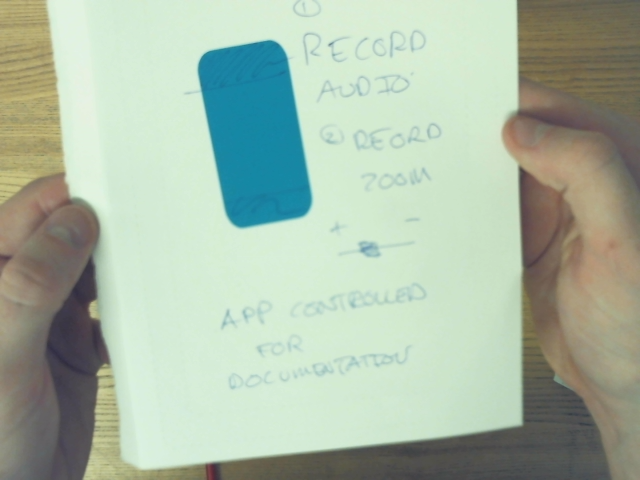 ①
RECORD
AUDIO
② RECORD
ZOOM
+ -
APP CONTROLLED
FOR
DOCUMENTATION